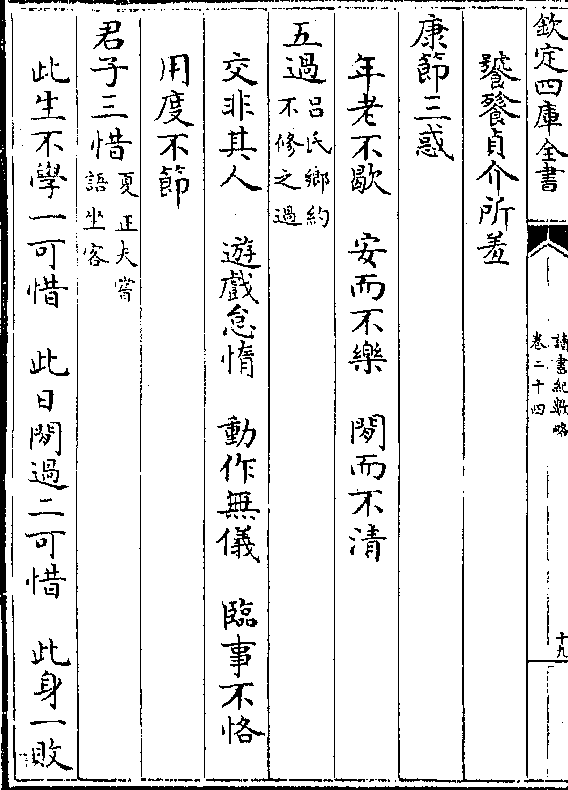 欽定四庫全書
讀書紀數略
卷二十四
十九
饕餮貞介所羞
康節三惑
年老不歇　安而不樂　閒而不清
五過 吕氏鄉約
不修之過
交非其人　遊戲怠惰　動作無儀　臨事不恪
用度不節
君子三惜 夏正夫嘗
語坐客
此生不學一可惜　此日閒過二可惜　此身一敗